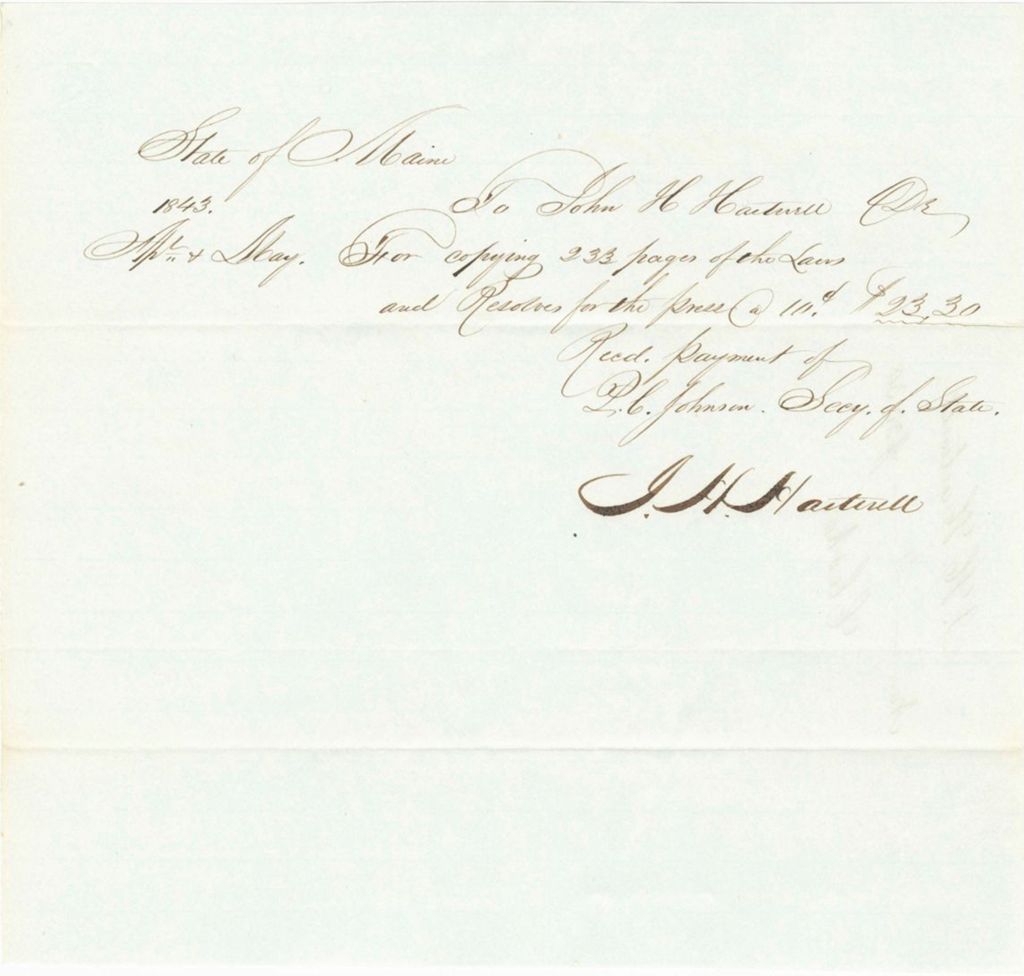 State of Maine
1843. To John H Hartwell Dr
Apl. & May. For copying 233 pages of the Laws
and Resolves for the press @ 10 $23,30
Recd. payment of
P.C. Johnson. Secy. of State.
J. H. Hartwell